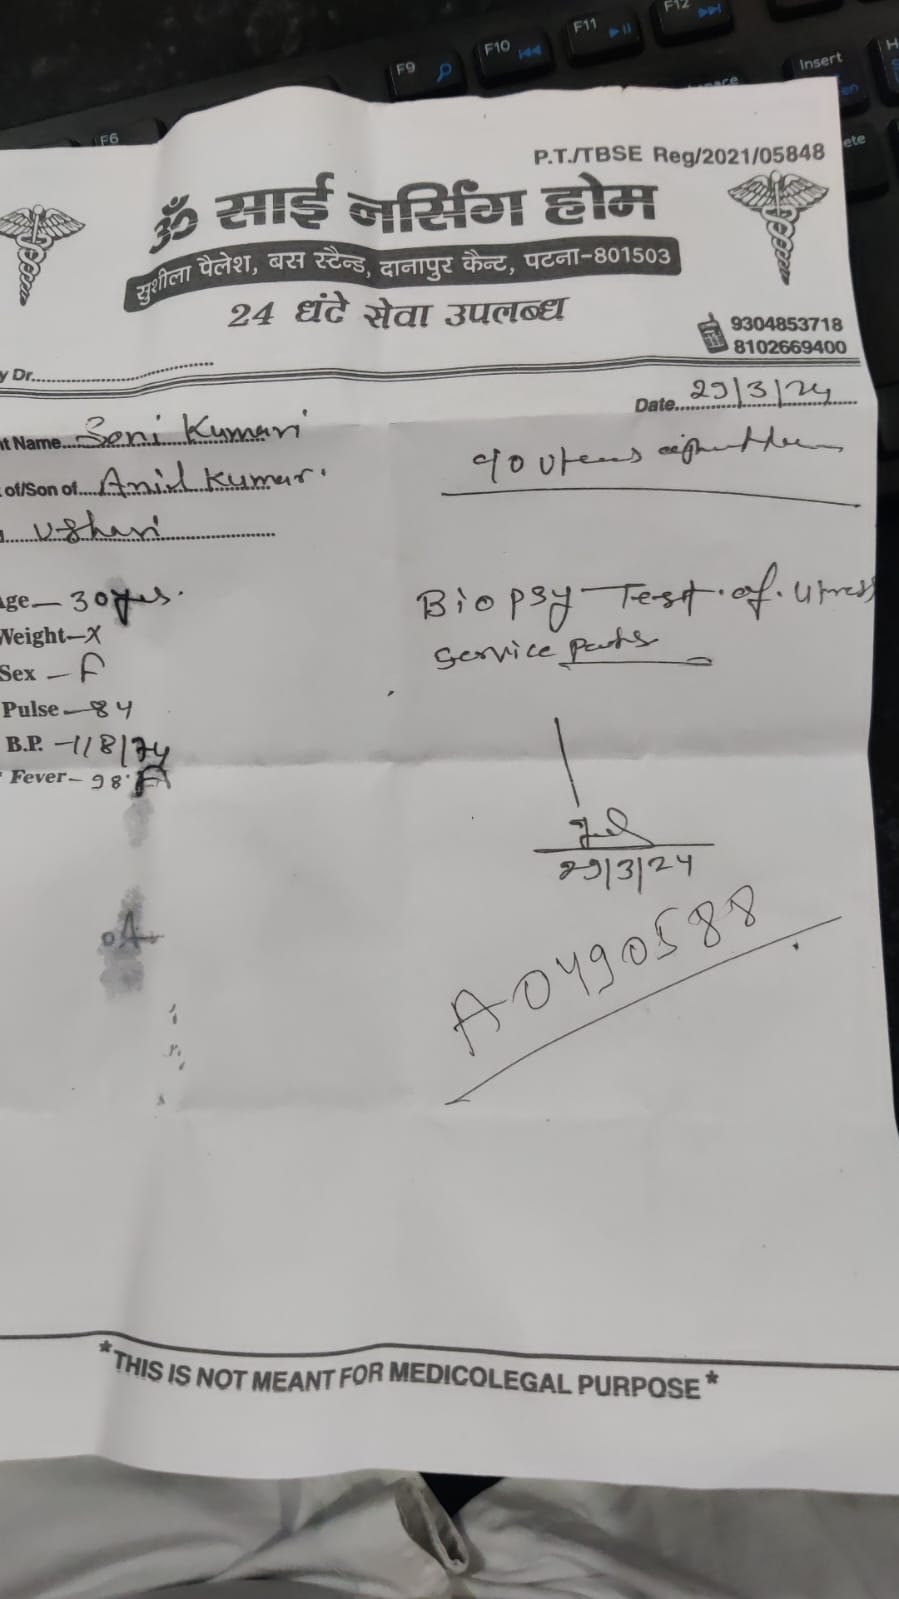 P.T./TBSE Reg/2021/05848
ॐ साई नर्सिंग होम
सुशीला पैलेश, बस स्टैन्ड, दानापुर कैन्ट, पटना-801503
24 घंटे सेवा उपलब्ध
9304853718
8102669400
y Dr.
Date 29/3/24
nt Name Soni Kumari
of/Son of Anil Kumar
Age— 30 yrs.
Weight—X
Sex — F
Pulse—84
B.P. —118/74
Fever— 98°F
Biopsy Test of Utress
service parts
29/3/24
A0490588
*THIS IS NOT MEANT FOR MEDICOLEGAL PURPOSE*
F6
F9
F10
F11
F12
Insert